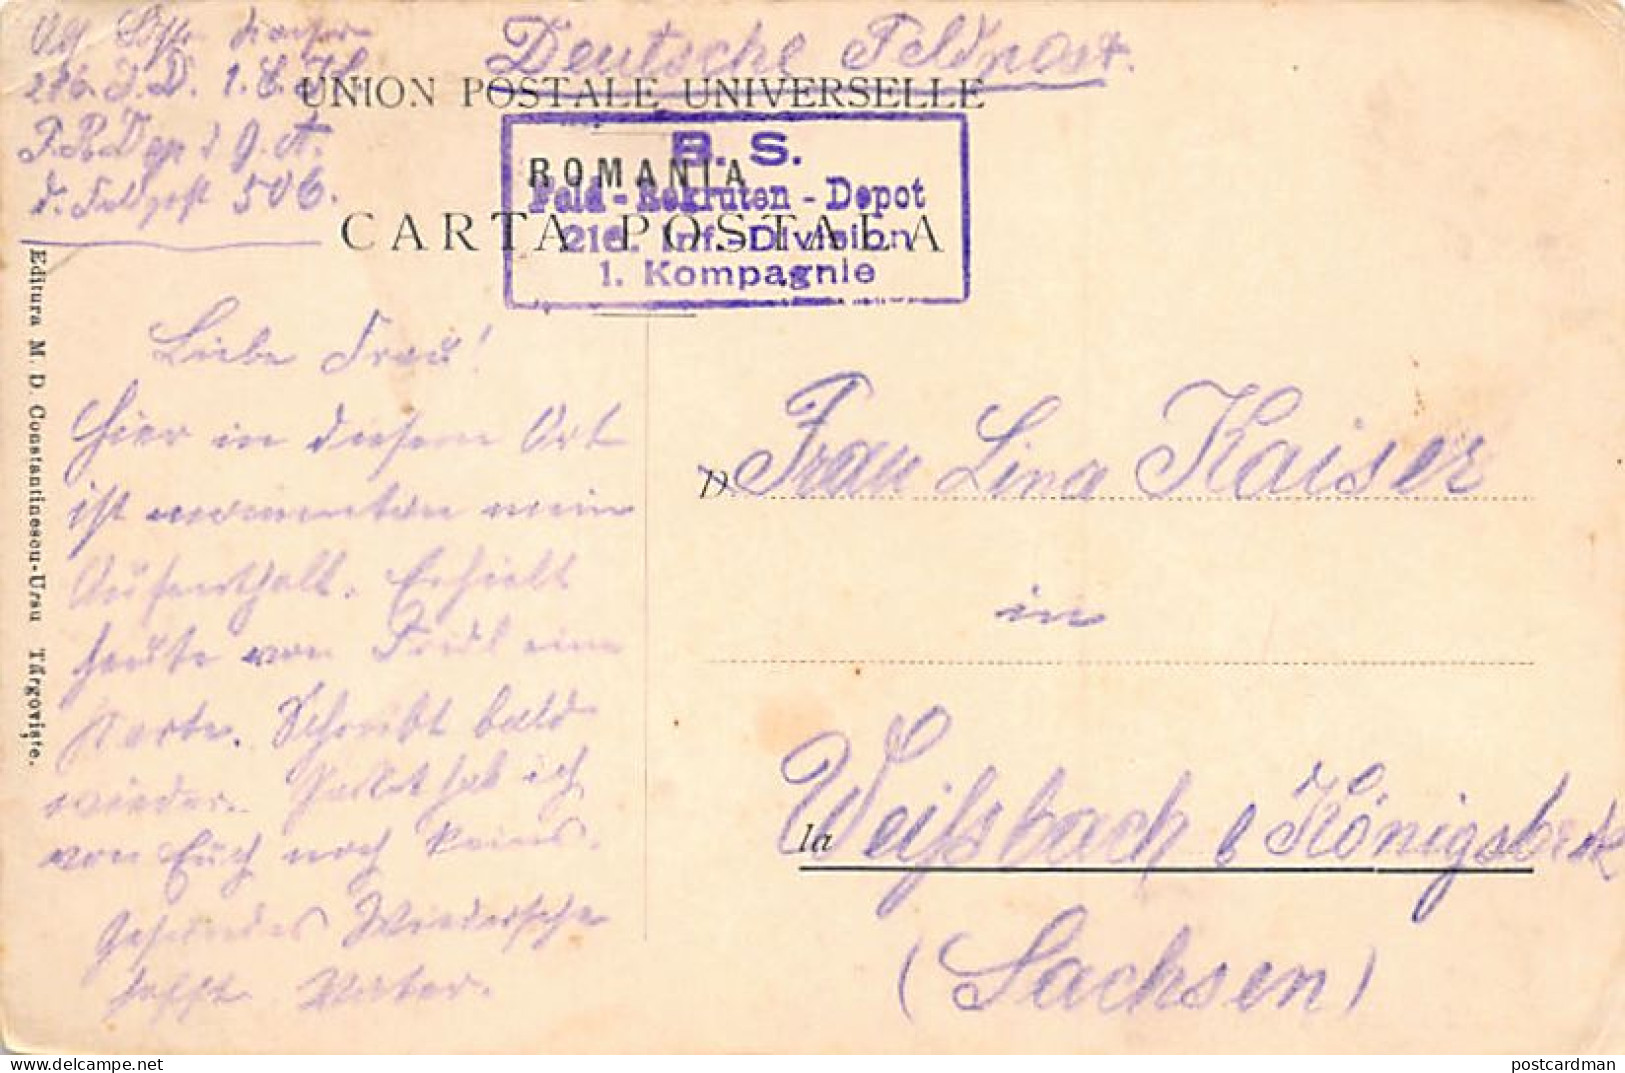 Deutsche Feldpost.
216. I.D. 1.
d. Feldpost 506.
UNION POSTALE UNIVERSELLE
ROMANIA
CARTA POSTALA
B. S.
Feld-Rekruten-Depot
216. Inf.-Division
1. Kompagnie
Editura M. D. Constantinescu-Ursu Târgoviște.
Liebe Frau!
Hier in diesem Ort
ist momentan mein
Aufenthalt. Erhielt
heute von Friedl eine
Karte. Schreibt bald
wieder. Paket hab ich
von Euch noch keins.
Gesundes Wiedersehn
hofft Vater.
D Frau Lina Kaiser
in
la Weißbach b Königsbrück
(Sachsen)
postcardman
delcampe.net